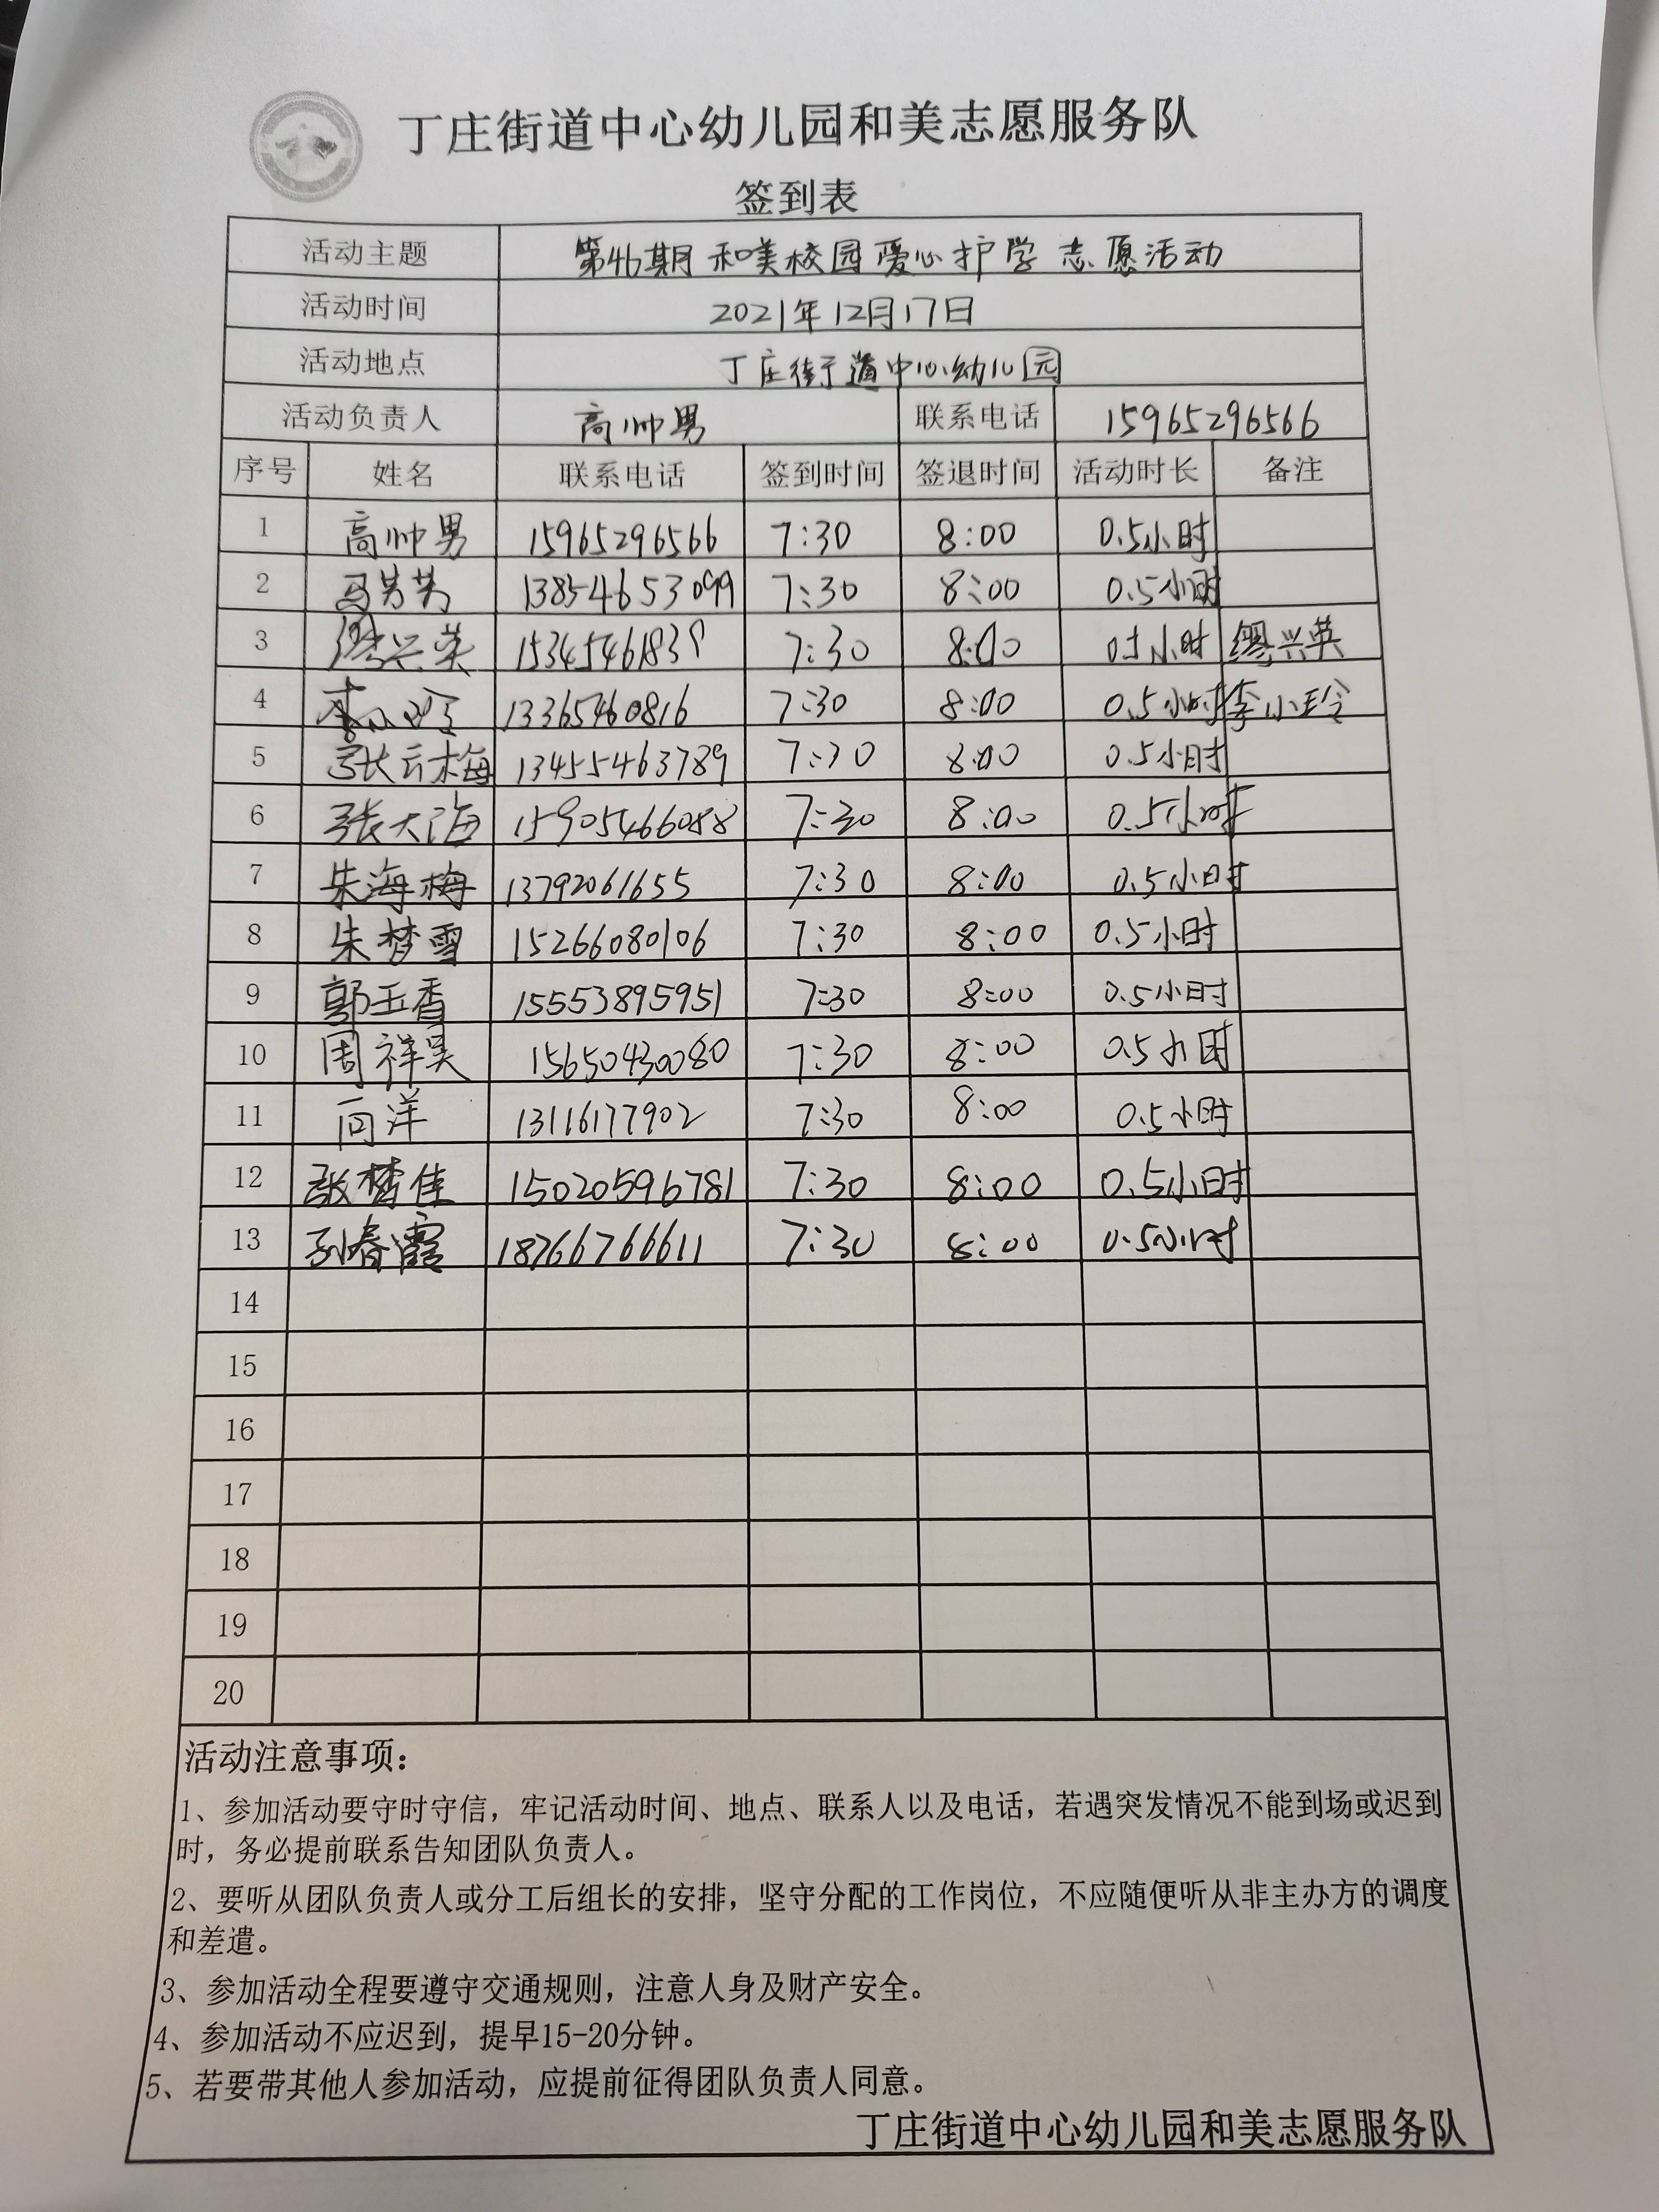 丁庄街道中心幼儿园和美志愿服务队
签到表
活动主题 第46期和美校园爱心护学志愿活动
活动时间 2021年12月17日
活动地点 丁庄街道中心幼儿园
活动负责人 高帅男 联系电话 15965296566
序号 姓名 联系电话 签到时间 签退时间 活动时长 备注
1 高帅男 15965296566 7:30 8:00 0.5小时
2 13854653099 7:30 8:00 0.5小时
3 缪兴英 15345461839 7:30 8:00 0.5小时 缪兴英
4 李小玲 13365460816 7:30 8:00 0.5小时 李小玲
5 张云梅 13455463789 7:30 8:00 0.5小时
6 张大海 15905466088 7:30 8:00 0.5小时
7 朱海梅 13792061655 7:30 8:00 0.5小时
8 朱梦雪 15266080106 7:30 8:00 0.5小时
9 郭玉香 15553895951 7:30 8:00 0.5小时
10 周祥昊 15650430080 7:30 8:00 0.5小时
11 向洋 13116177902 7:30 8:00 0.5小时
12 张梦佳 15020596781 7:30 8:00 0.5小时
13 孙春霞 18766766611 7:30 8:00 0.5小时
14
15
16
17
18
19
20
活动注意事项：
1、参加活动要守时守信，牢记活动时间、地点、联系人以及电话，若遇突发情况不能到场或迟到
时，务必提前联系告知团队负责人。
2、要听从团队负责人或分工后组长的安排，坚守分配的工作岗位，不应随便听从非主办方的调度
和差遣。
3、参加活动全程要遵守交通规则，注意人身及财产安全。
4、参加活动不应迟到，提早15-20分钟。
5、若要带其他人参加活动，应提前征得团队负责人同意。
丁庄街道中心幼儿园和美志愿服务队